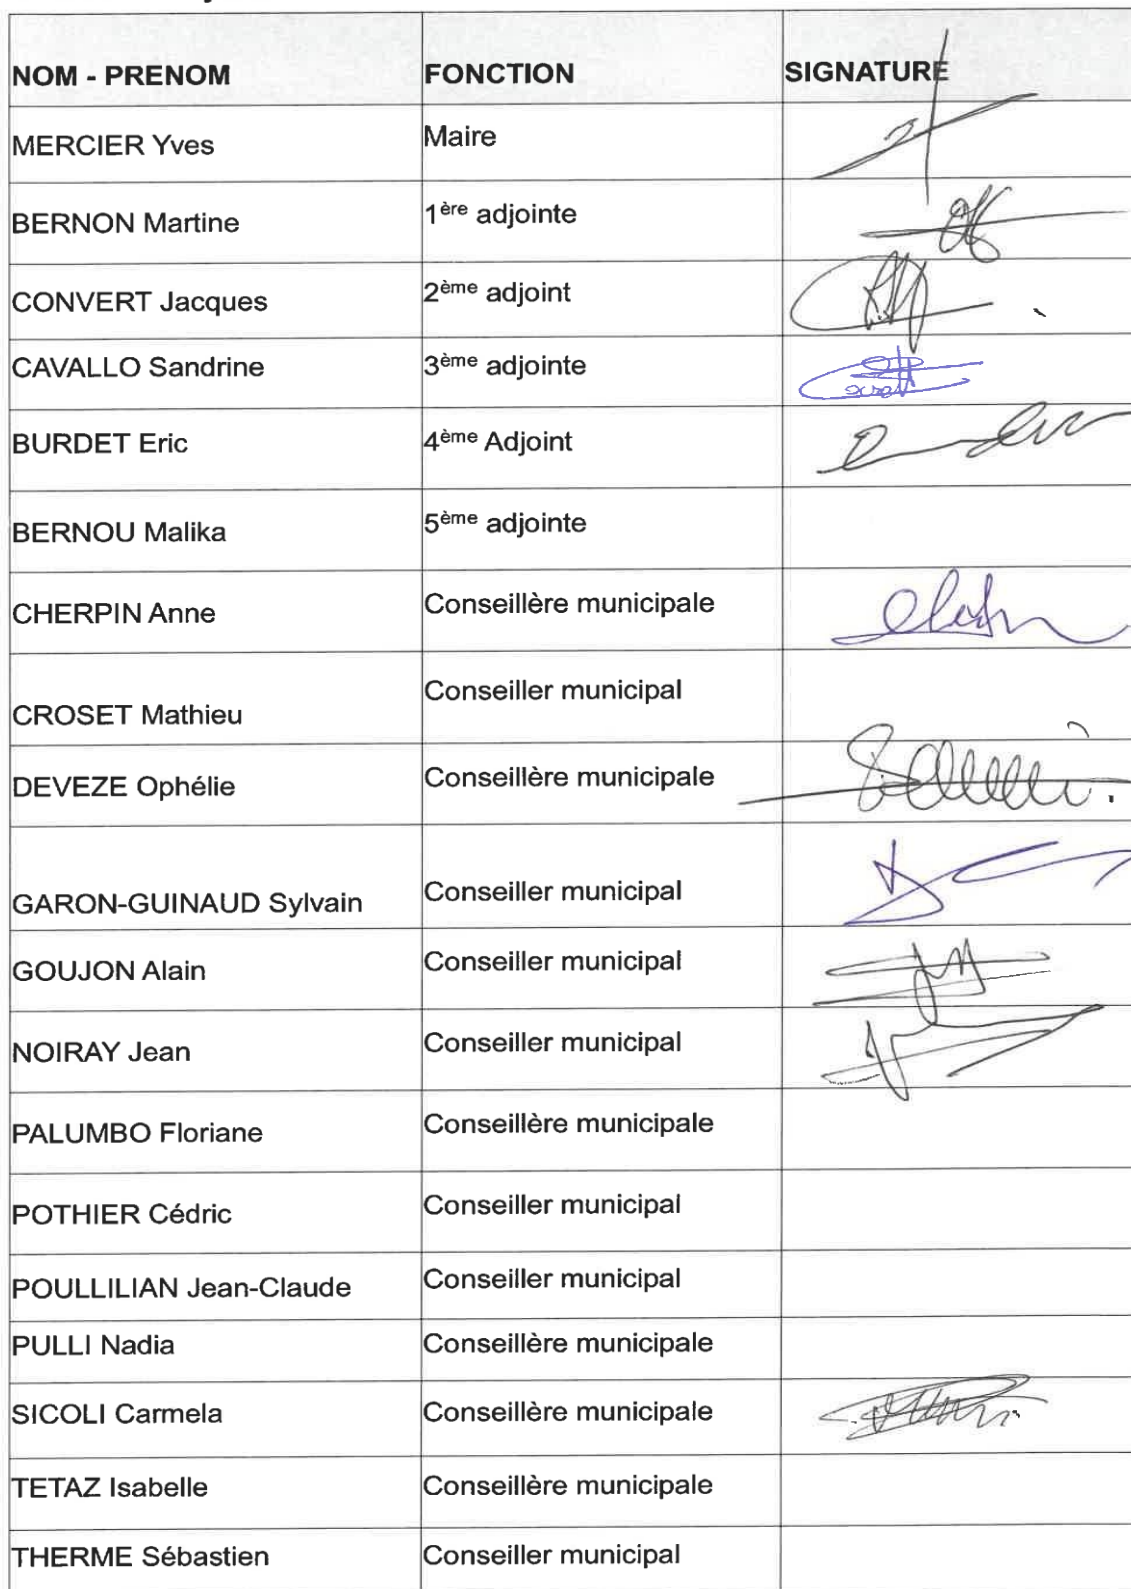 NOM - PRENOM FONCTION SIGNATURE
MERCIER Yves Maire
BERNON Martine 1ère adjointe
CONVERT Jacques 2ème adjoint
CAVALLO Sandrine 3ème adjointe
BURDET Eric 4ème Adjoint
BERNOU Malika 5ème adjointe
CHERPIN Anne Conseillère municipale
CROSET Mathieu Conseiller municipal
DEVEZE Ophélie Conseillère municipale
GARON-GUINAUD Sylvain Conseiller municipal
GOUJON Alain Conseiller municipal
NOIRAY Jean Conseiller municipal
PALUMBO Floriane Conseillère municipale
POTHIER Cédric Conseiller municipal
POULLILIAN Jean-Claude Conseiller municipal
PULLI Nadia Conseillère municipale
SICOLI Carmela Conseillère municipale
TETAZ Isabelle Conseillère municipale
THERME Sébastien Conseiller municipal